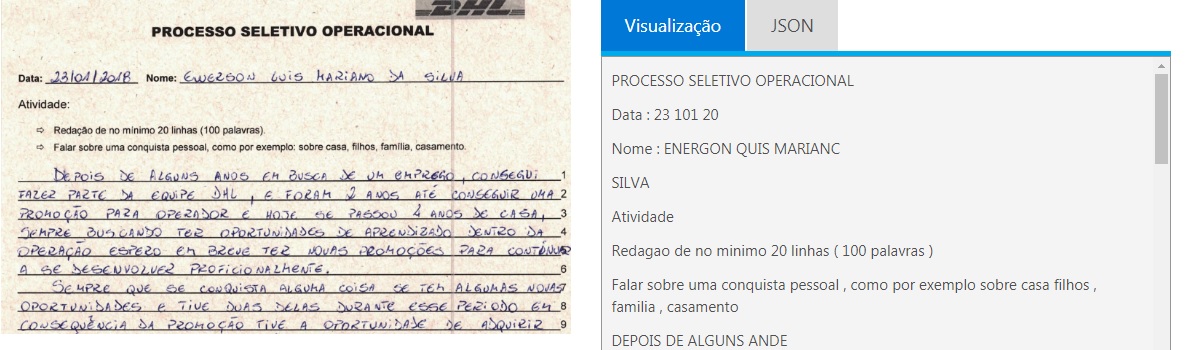 DHL
PROCESSO SELETIVO OPERACIONAL
Data: 23/01/2018 Nome: EWERSON LUIS MARIANO DA SILVA
Atividade:
⇨ Redação de no mínimo 20 linhas (100 palavras).
⇨ Falar sobre uma conquista pessoal, como por exemplo: sobre casa, filhos, família, casamento.
DEPOIS DE ALGUNS ANOS EM BUSCA DE UM EMPREGO, CONSEGUI 1
FAZER PARTE DA EQUIPE DHL, E FORAM 2 ANOS ATÉ CONSEGUIR UMA 2
PROMOÇÃO PARA OPERADOR E HOJE SE PASSOU 4 ANOS DE CASA, 3
SEMPRE BUSCANDO TER OPORTUNIDADES DE APRENDIZADO DENTRO DA 4
OPERAÇÃO ESPERO EM BREVE TER NOVAS PROMOÇÕES PARA CONTINUAR
A SE DESENVOLVER PROFICIONALMENTE. 6
SEMPRE QUE SE CONQUISTA ALGUMA COISA SE TEM ALGUMAS NOVAS
OPORTUNIDADES E TIVE DUAS DELAS DURANTE ESSE PERIODO EM 8
CONSEQUÊNCIA DA PROMOÇÃO TIVE A OPORTUNIDADE DE ADQUIRIR 9
Visualização JSON
PROCESSO SELETIVO OPERACIONAL
Data : 23 101 20
Nome : ENERGON QUIS MARIANC
SILVA
Atividade
Redagao de no minimo 20 linhas ( 100 palavras )
Falar sobre uma conquista pessoal , como por exemplo sobre casa filhos ,
familia , casamento
DEPOIS DE ALGUNS ANDE